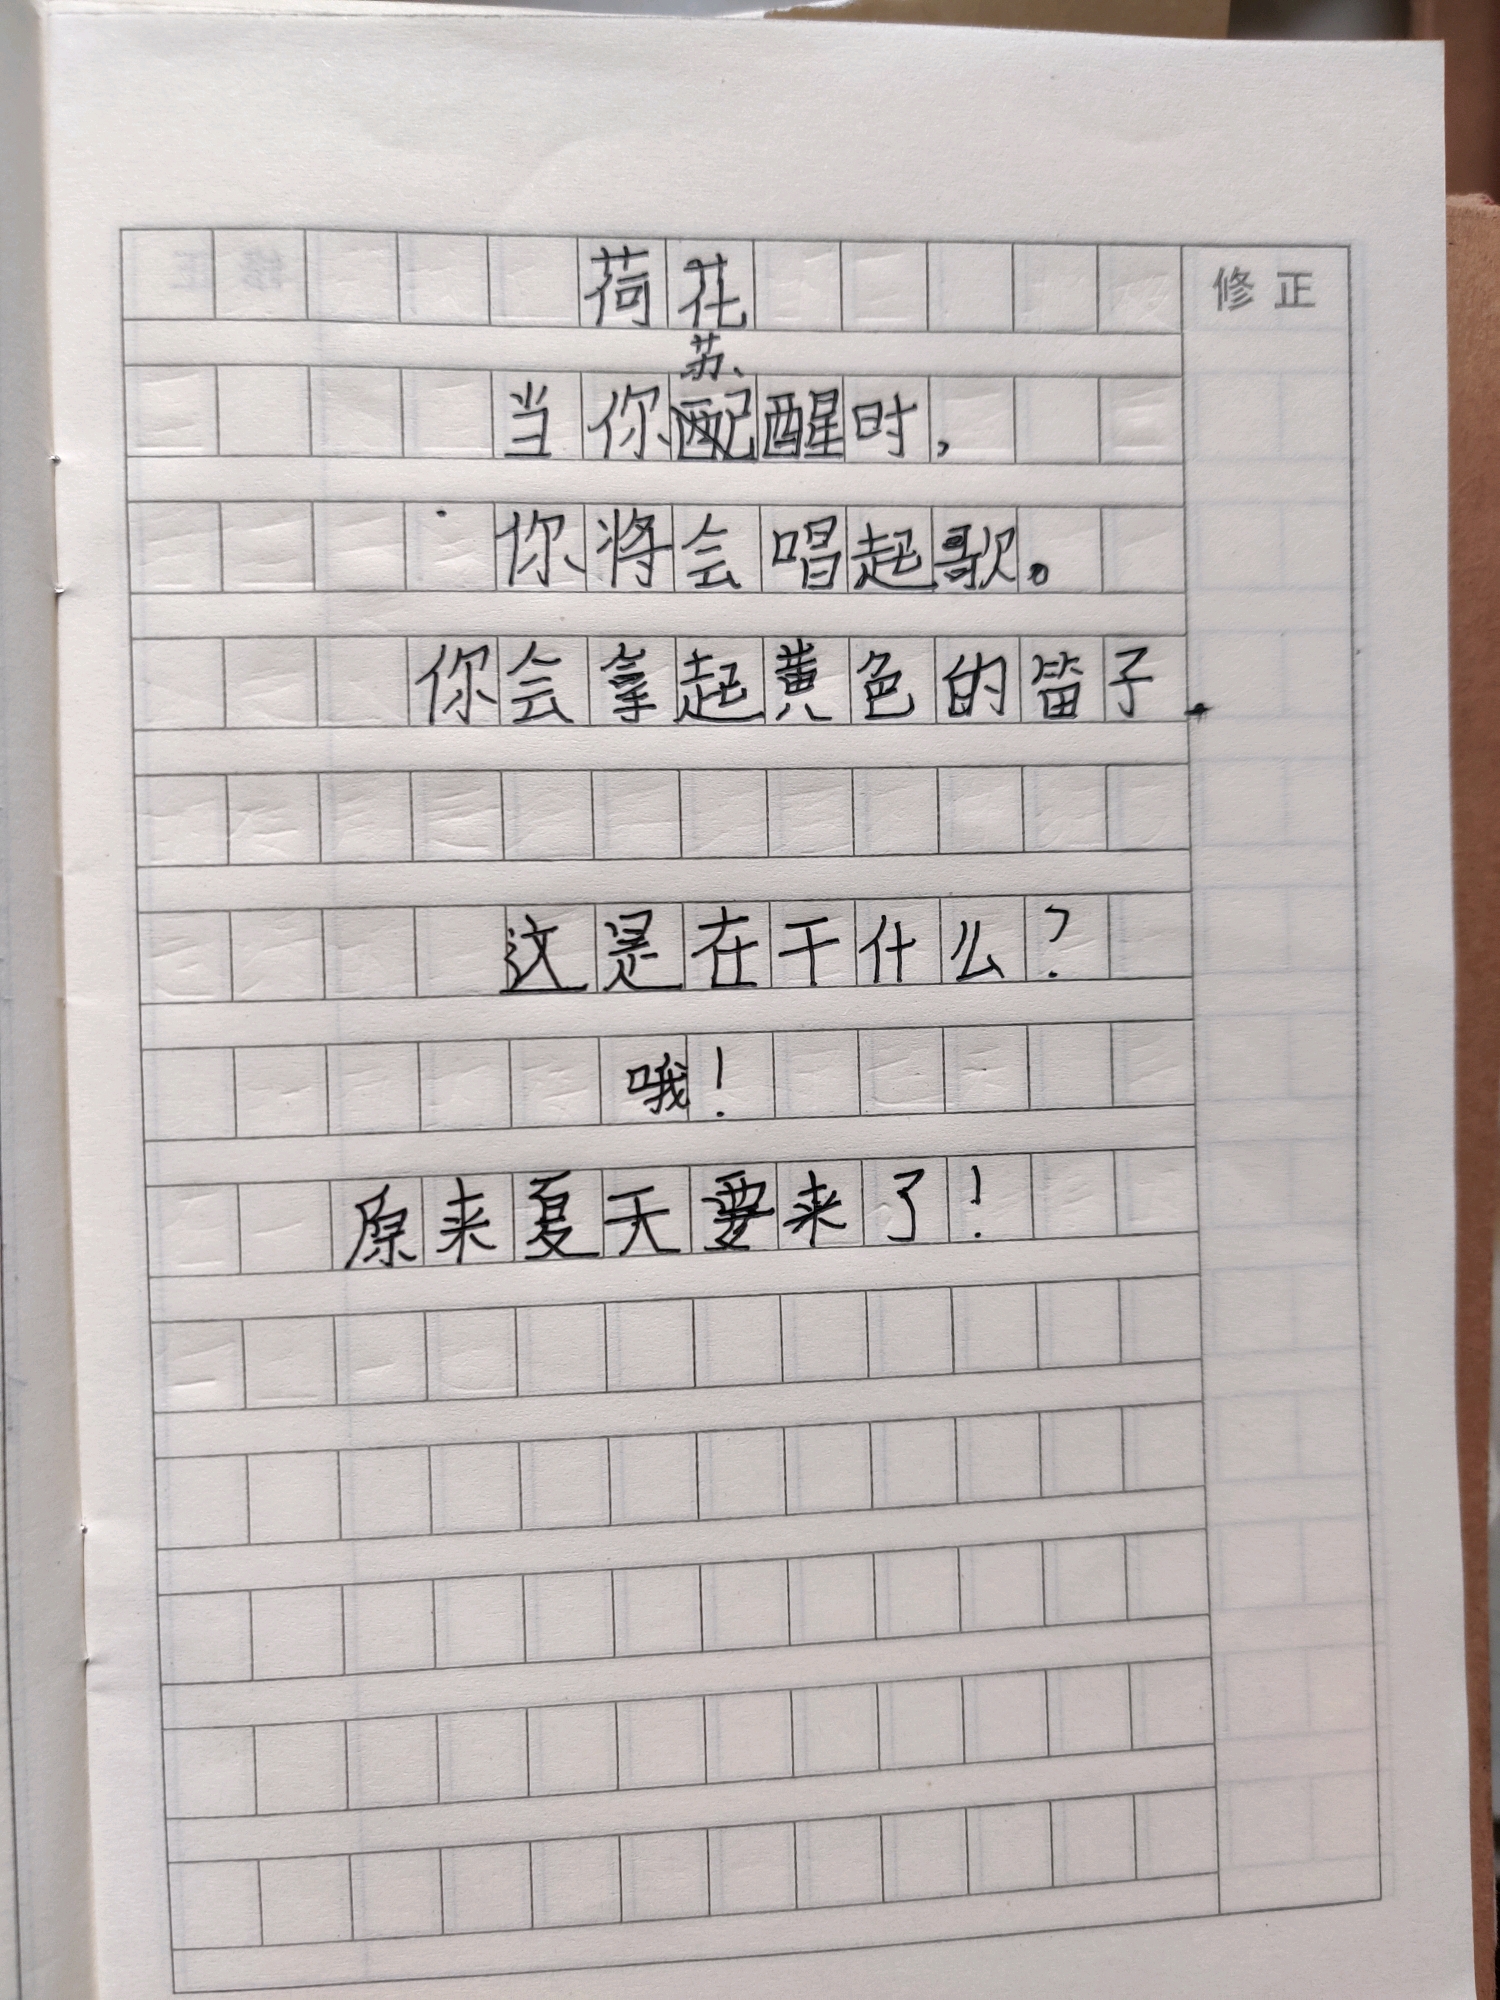 荷花
修正
苏
当你醒时，
你将会唱起歌。
你会拿起黄色的笛子.
这是在干什么？
哦！
原来夏天要来了！